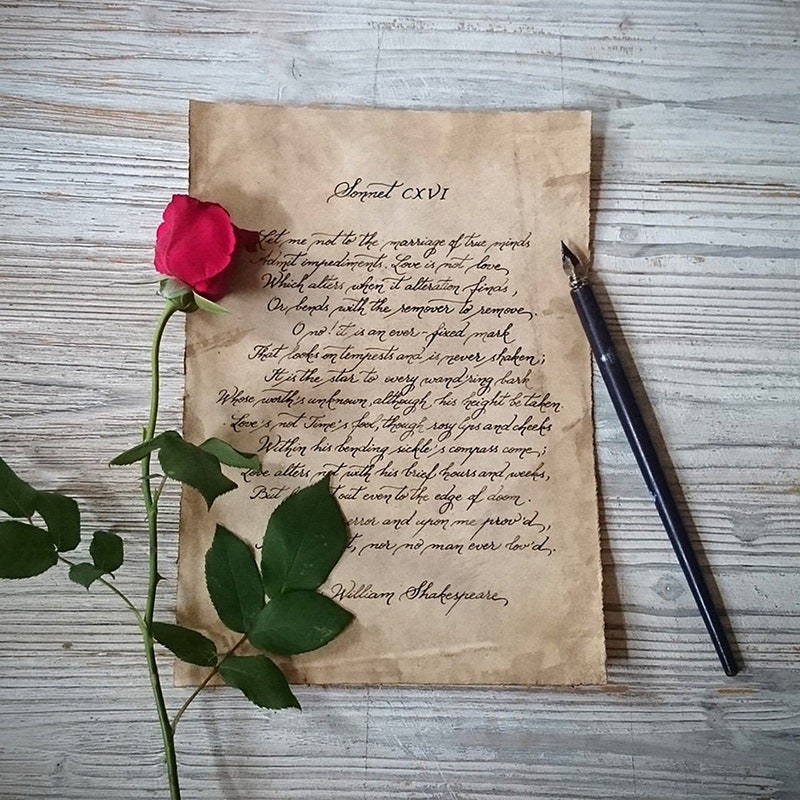 Sonnet CXVI
Let me not to the marriage of true minds
Admit impediments. Love is not love
Which alters when it alteration finds,
Or bends with the remover to remove.
O no! it is an ever-fixed mark
That looks on tempests and is never shaken;
It is the star to every wand'ring bark
Whose worth's unknown, although his height be taken.
Love's not Time's fool, though rosy lips and cheeks
Within his bending sickle's compass come;
Love alters not with his brief hours and weeks,
But out even to the edge of doom.
error and upon me prov'd,
, nor no man ever lov'd.
William Shakespeare